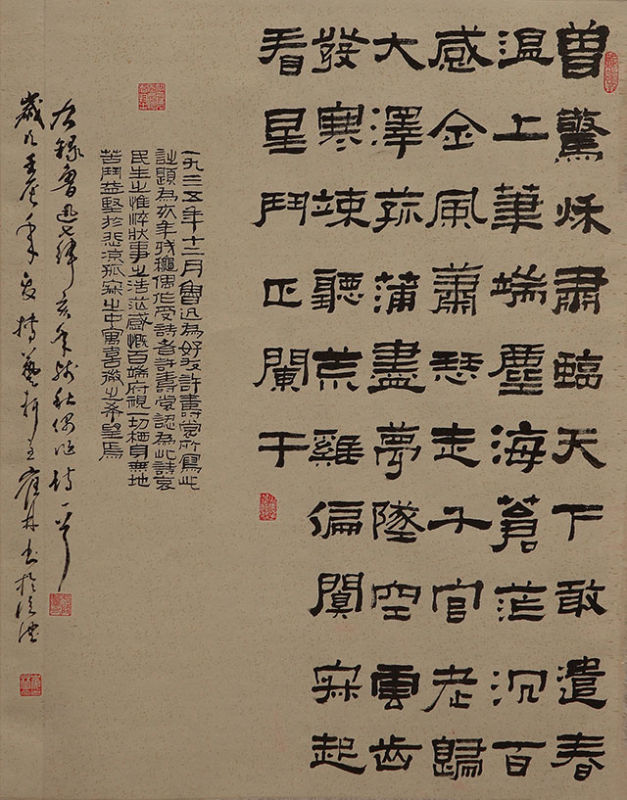 曾驚秌肅臨天下敢遣春
溫上筆端塵海蒼茫沉百
感金風蕭瑟走千官老歸
大澤菰蒲盡夢墜空雲齒
發寒竦聽荒雞偏闃寂起
看星鬥正闌干
一九三五年十二月魯迅為好友許壽裳所寫此
詩題為亥年残穐偶作受詩者許壽裳認為此詩哀
民生之憔悴狀事之浩茫感慨百端府視一切栖身無地
苦鬥益堅於悲凉孤寂之中寓熹微之希望焉
右録魯迅七律亥年殘秋偶作詩一首
歲次壬辰年夏博藝軒主崔林書於